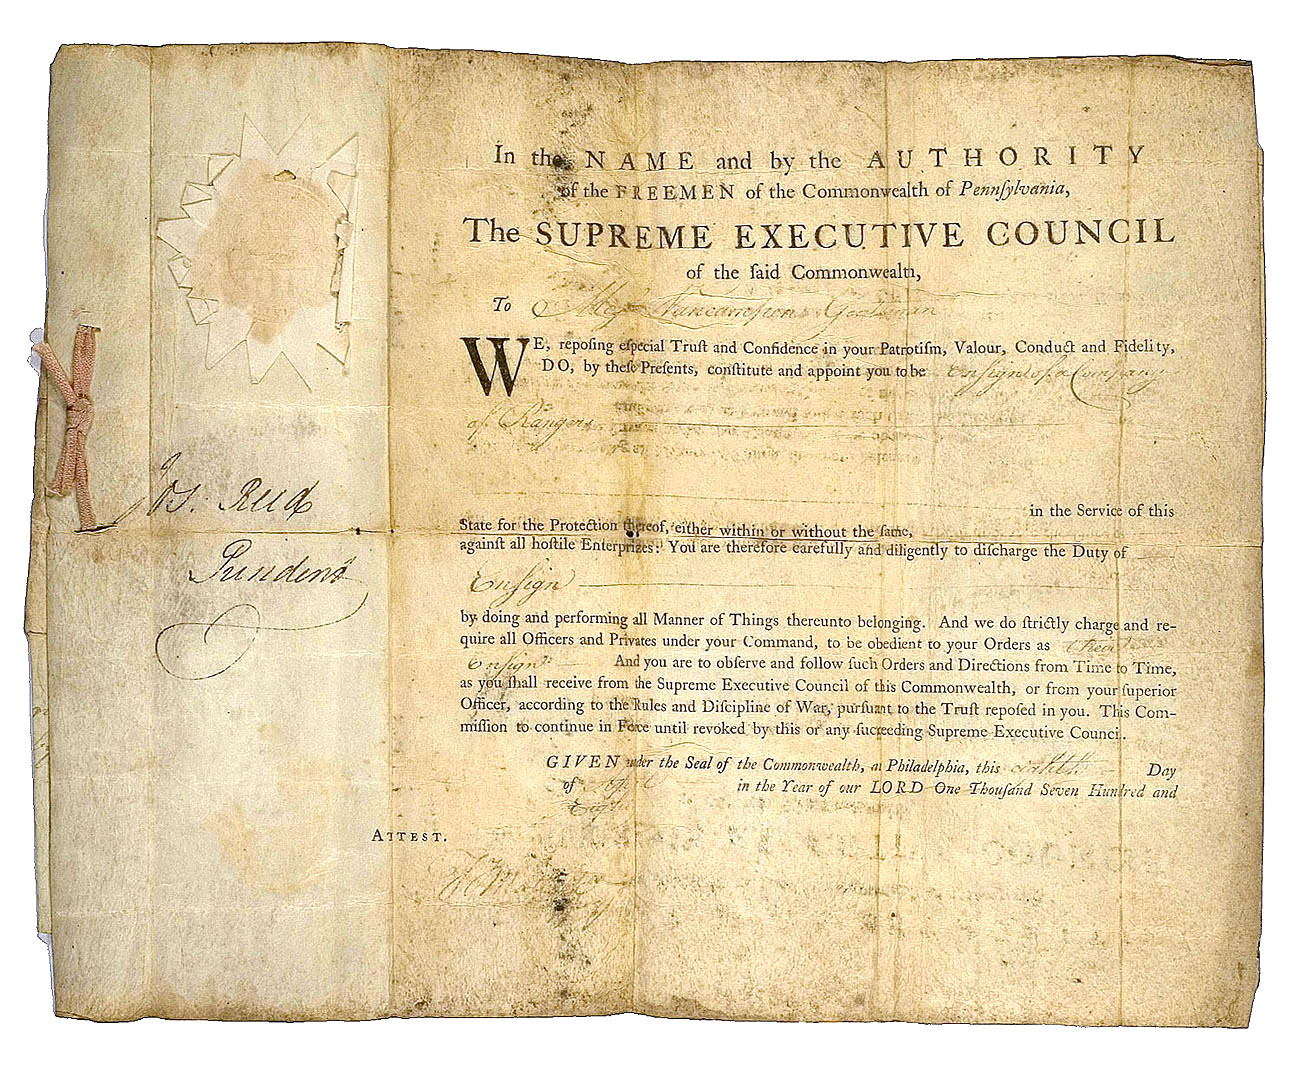 In the NAME and by the AUTHORITY
of the FREEMEN of the Commonwealth of Pennſylvania,
The SUPREME EXECUTIVE COUNCIL
of the ſaid Commonwealth,
To
WE, repoſing eſpecial Truſt and Confidence in your Patrotiſm, Valour, Conduct and Fidelity,
DO, by theſe Preſents, conſtitute and appoint you to be Ensign of a Company
of Rangers
in the Service of this
State for the Protection thereof, either within or without the ſame,
againſt all hoſtile Enterprizes: You are therefore carefully and diligently to diſcharge the Duty of
Ensign
by doing and performing all Manner of Things thereunto belonging. And we do ſtrictly charge and re-
quire all Officers and Privates under your Command, to be obedient to your Orders as their
Ensign And you are to obſerve and follow ſuch Orders and Directions from Time to Time,
as you ſhall receive from the Supreme Executive Council of this Commonwealth, or from your ſuperior
Officer, according to the Rules and Diſcipline of War, purſuant to the Truſt repoſed in you. This Com-
miſſion to continue in Force until revoked by this or any ſucceeding Supreme Executive Council.
GIVEN under the Seal of the Commonwealth, at Philadelphia, this Day
of April in the Year of our LORD One Thouſand Seven Hundred and
Eighty
ATTEST.
Jos. Reed
President